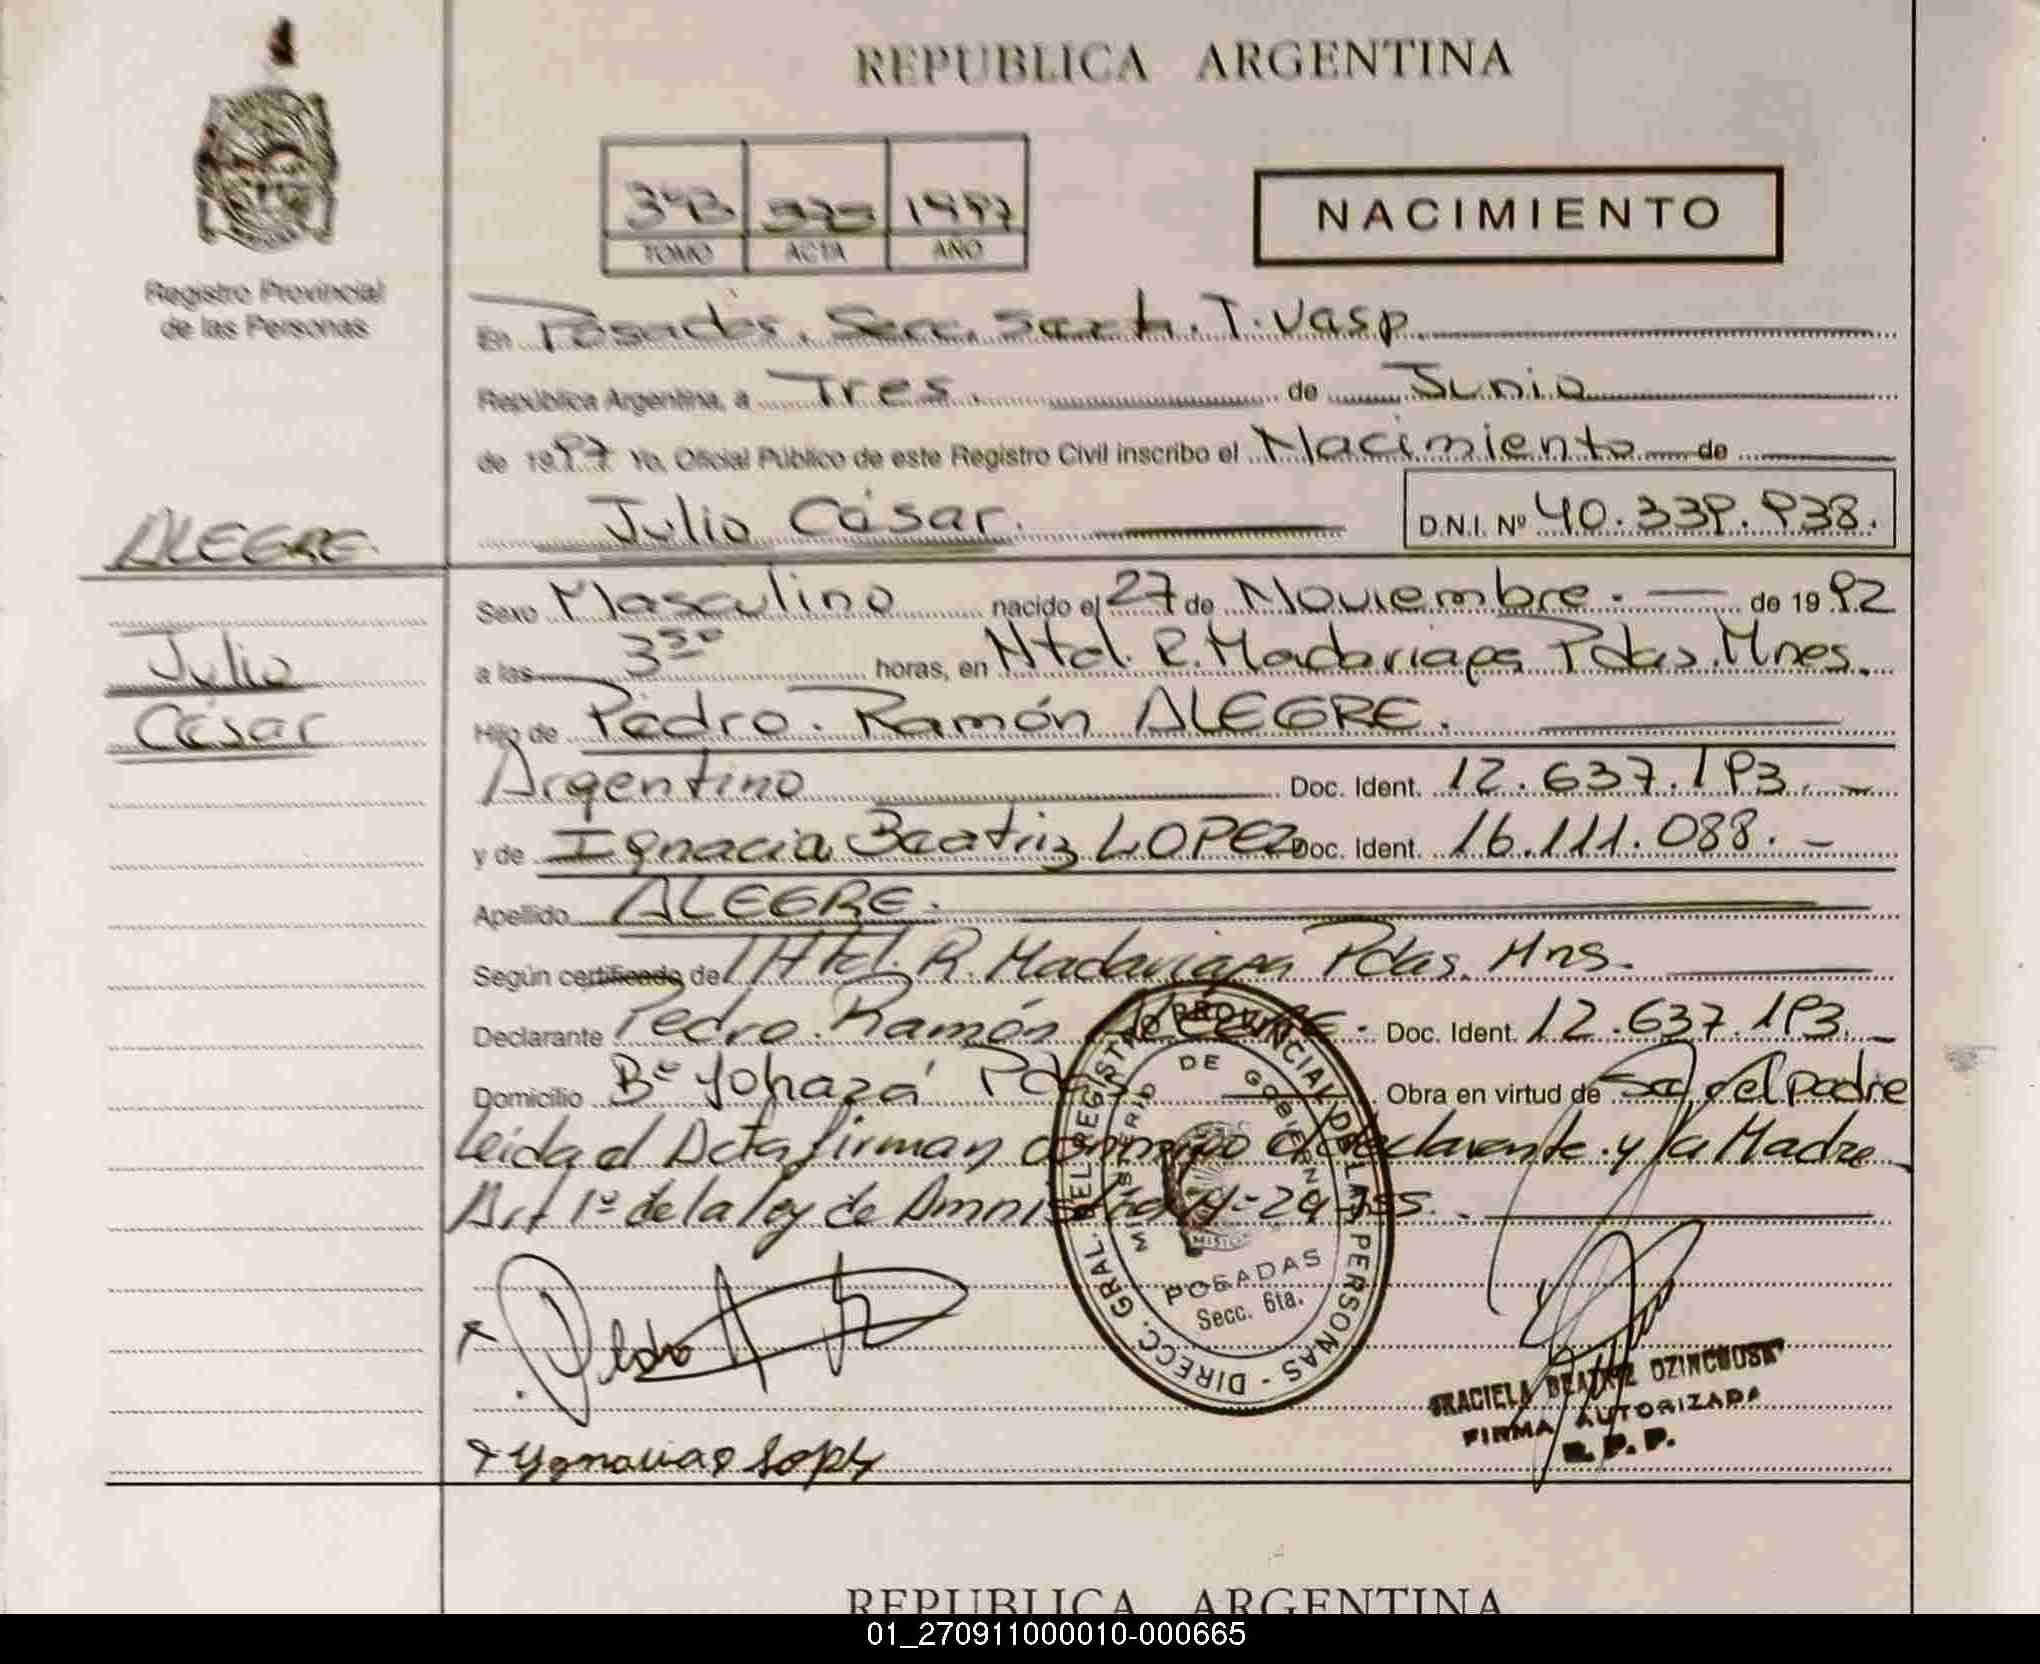 REPUBLICA ARGENTINA
1997
TOMO ACTA AÑO
NACIMIENTO
Registro Provincial
de las Personas
En Posadas. Secc. Sexta. T. Vasp
República Argentina, a Tres. de Junio
de 1997 Yo, Oficial Público de este Registro Civil inscribo el Nacimiento de
Julio César. D.N.I. Nº 40.339.938.
ALEGRE
Julio
César
Sexo Masculino nacido el 27 de Noviembre. — de 1992
a las 3 50 horas, en Htal. R. Madariaga Pdas. Mnes.
Hijo de Pedro. Ramón ALEGRE.
Argentino Doc. Ident. 12.637.193. -
y de Ignacia Beatriz LOPEZ Doc. Ident. 16.111.088. -
Apellido ALEGRE.
Según certificado de Htal. R. Madariaga Pdas. Mns.
Declarante Pedro. Ramón ALEGRE. Doc. Ident. 12.637.193. -
Domicilio Bº Yohasá Pdas Obra en virtud de ser el padre
leida el Acta firman conmigo el declarante y la Madre
Art 1º de la ley de Amnistia
DIRECC. GRAL. DEL REGISTRO PROVINCIAL DE LAS PERSONAS -
MINISTERIO DE GOBIERNO
POSADAS
Secc. 6ta.
Pedro
GRACIELA BEATRIZ
FIRMA AUTORIZADA
R. P. P.
Ygnacia Lopez
REPUBLICA ARGENTINA
01_270911000010-000665